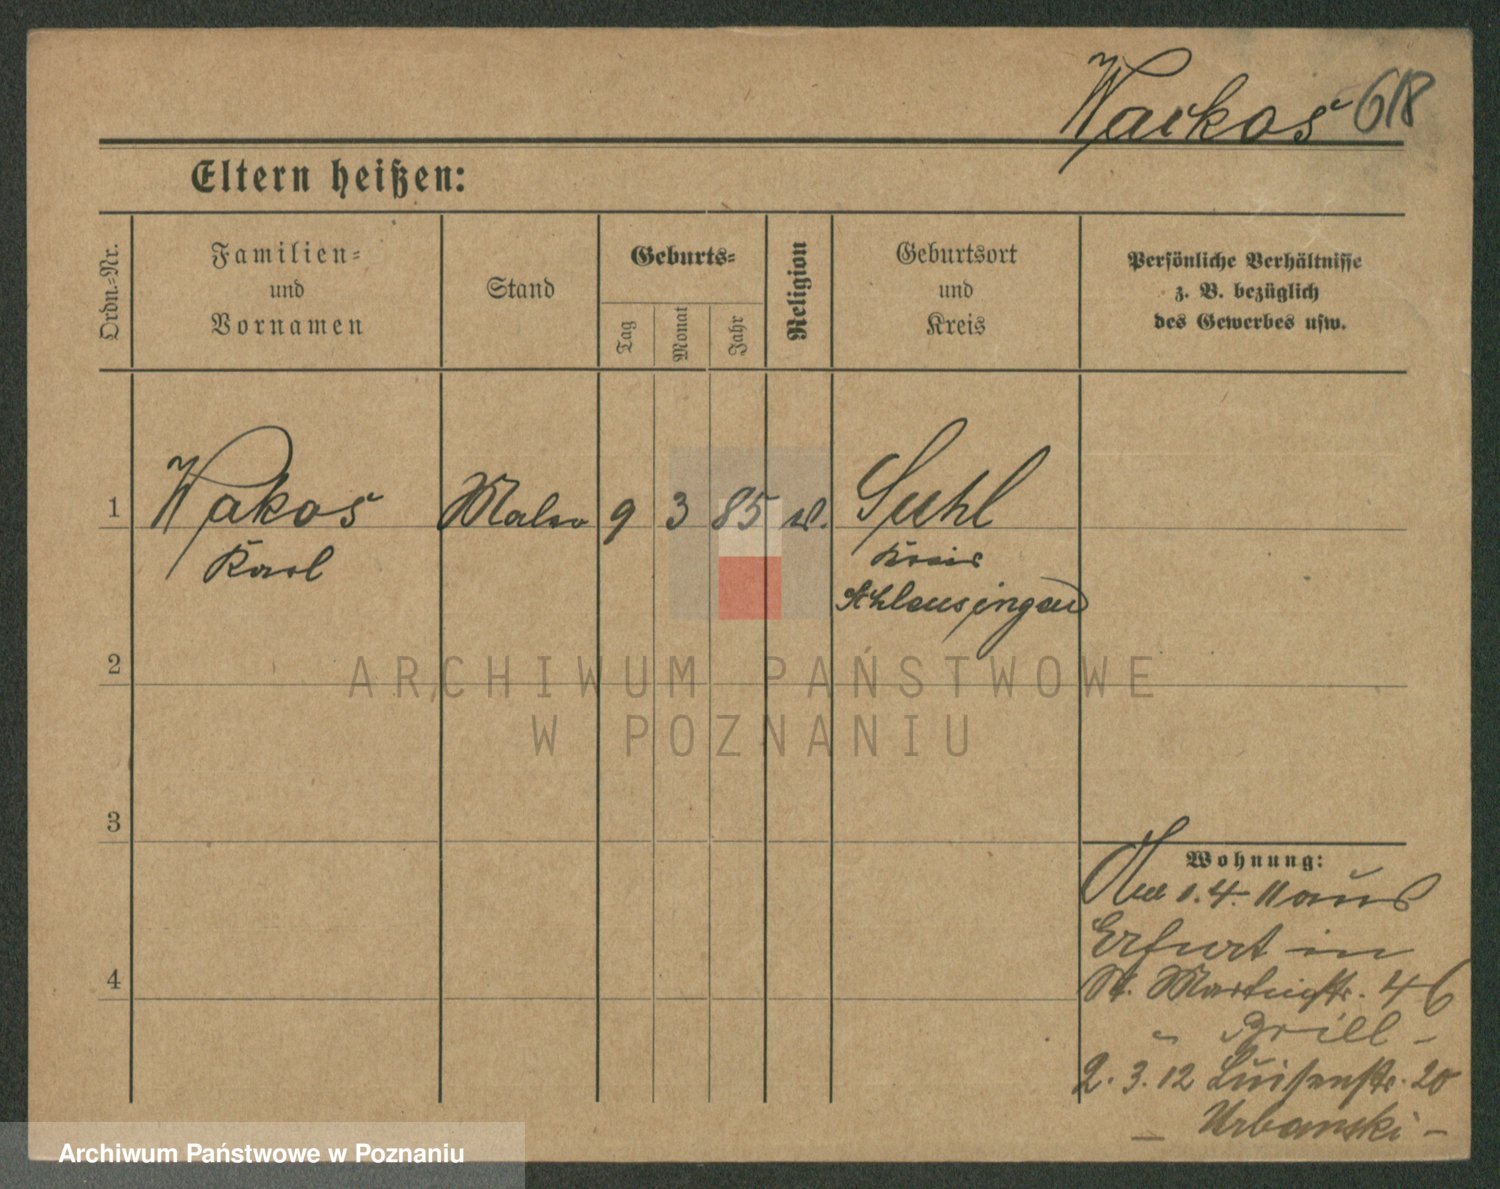 Warkos 618
Eltern heißen:
Ordn.-Nr.
Familien-
und
Vornamen
Stand
Geburts-
Tag
Monat
Jahr
Religion
Geburtsort
und
Kreis
Persönliche Verhältnisse
z. B. bezüglich
des Gewerbes usw.
1
Wakos
Karl
Maler
9
3
85
Suhl
Kreis
Schleusingen
2
3
4
Wohnung:
1.4.
Erfurt in
St. Martinstr. 46
Brill
2.3.12 Luisenstr. 20
Urbanski
ARCHIWUM PAŃSTWOWE
W POZNANIU
Archiwum Państwowe w Poznaniu